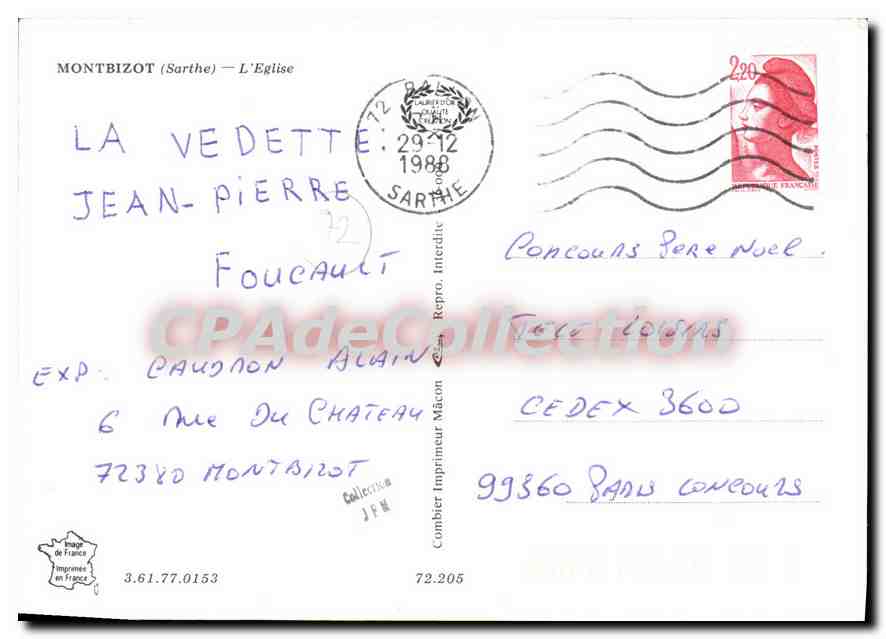 MONTBIZOT (Sarthe) — L'Eglise
LA VEDETTE:
JEAN-PIERRE
FOUCAULT
72
EXP: CAUDRON ALAIN
6 rue DU CHATEAU
72380 MONTBIZOT
Collection
JFM
Image
de France
Imprimée
en France
3.61.77.0153
72.205
Combier Imprimeur Mâcon
Repro. Interdite
72
29-12
1988
SARTHE
LAURIER D'OR
QUALITÉ
2,20
REPUBLIQUE FRANÇAISE
CONCOURS PERE NOEL
TELE LOISIRS
CEDEX 3600
99360 PARIS CONCOURS
CPAdeCollection